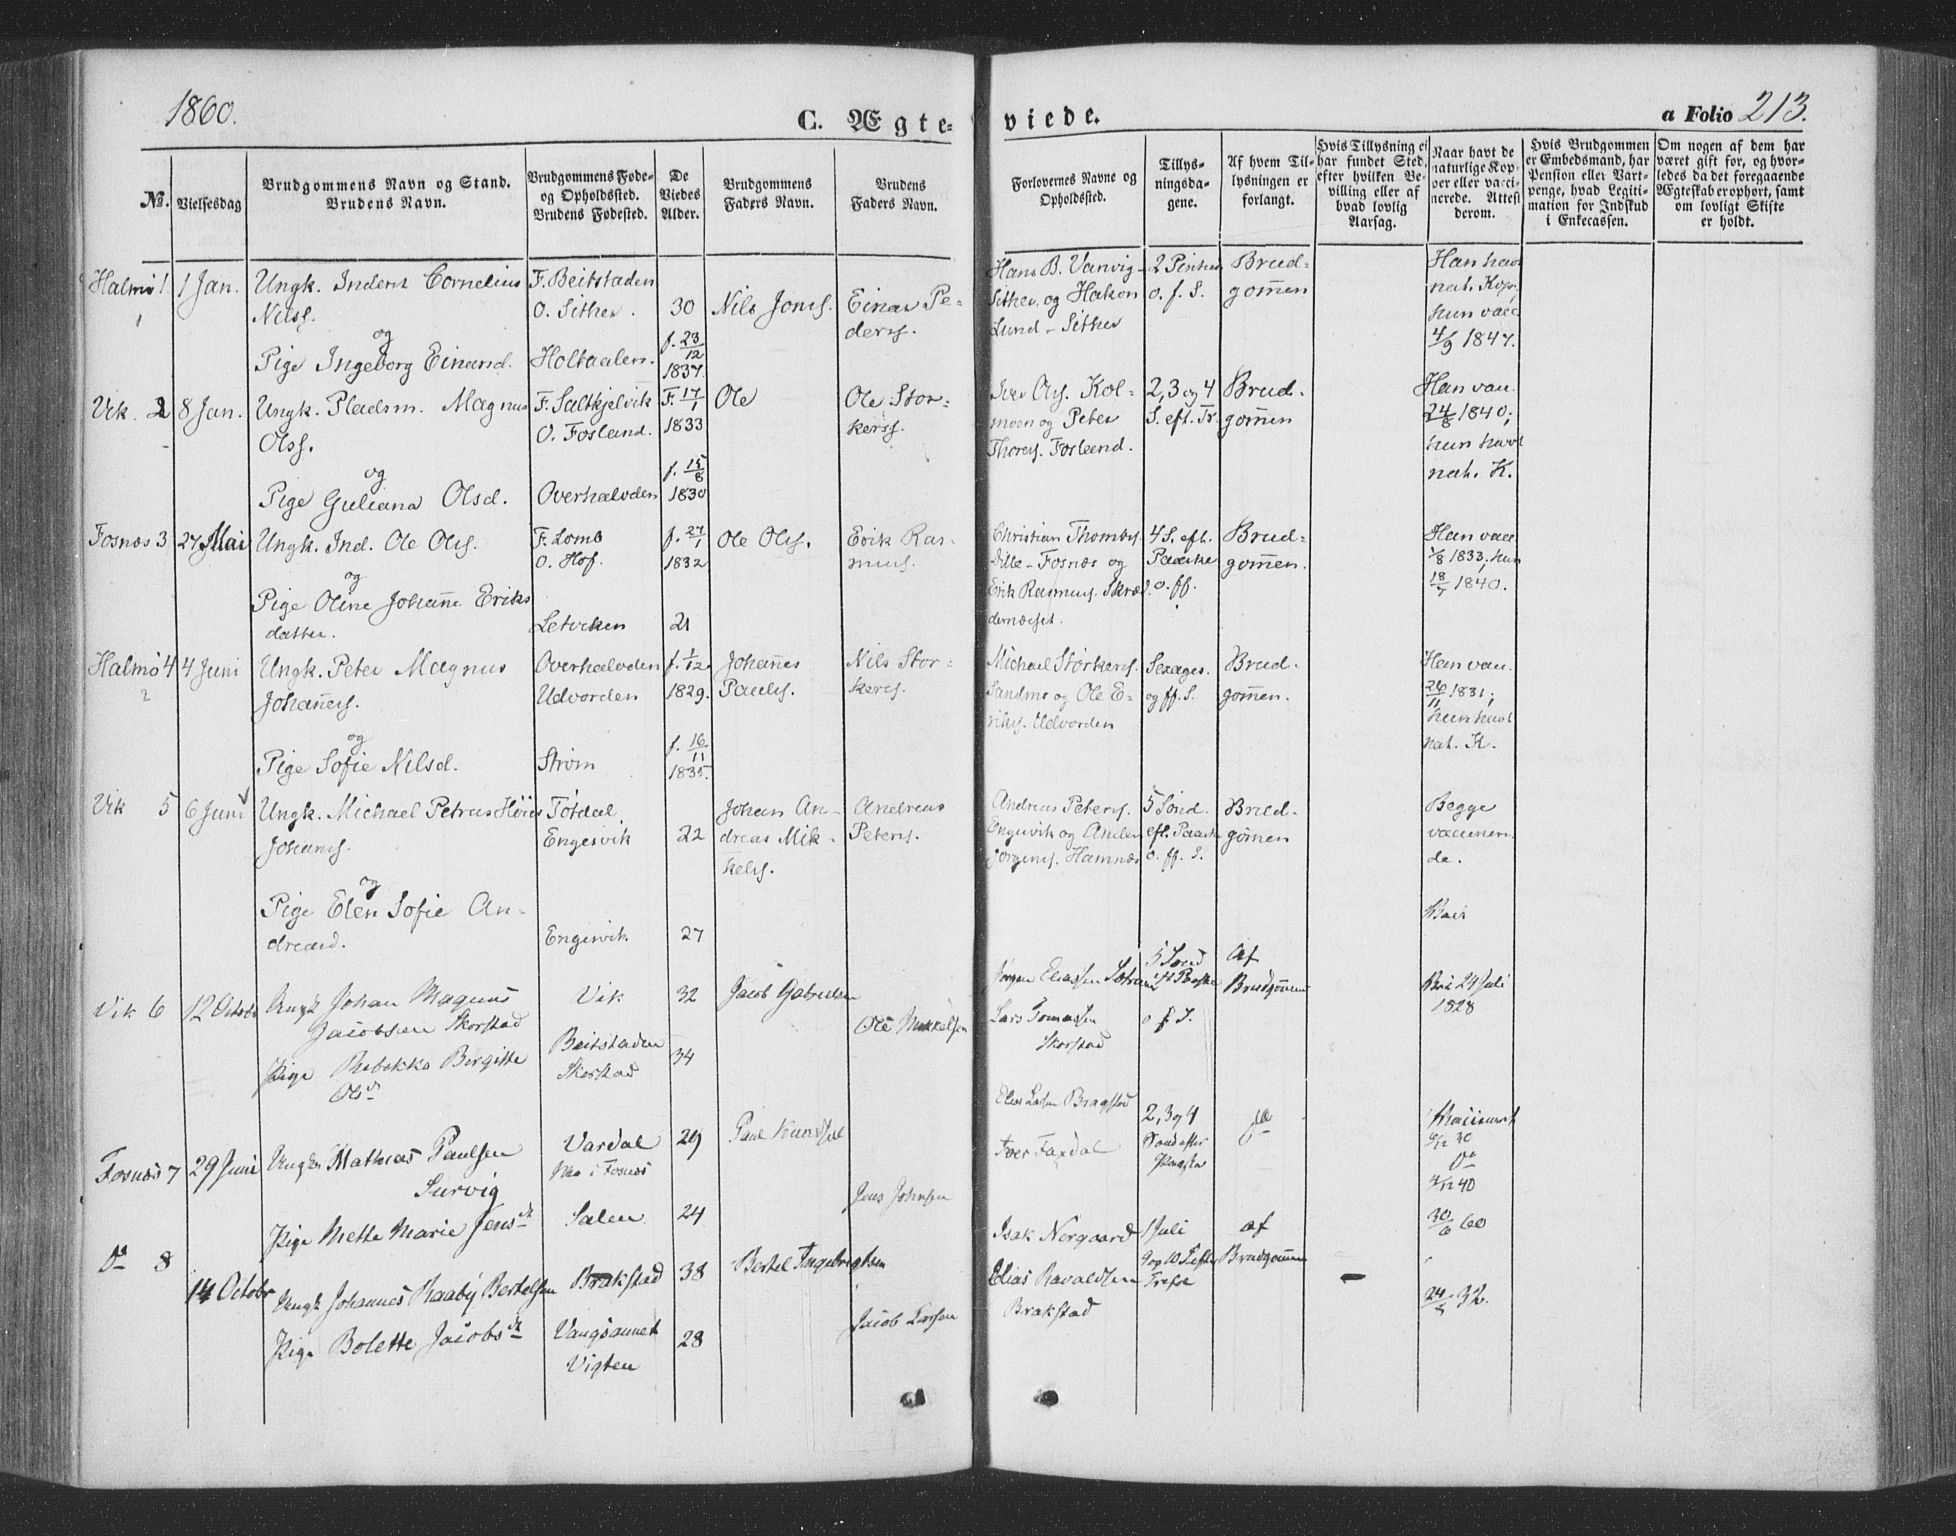 1860.
C. Ægte-
viede.
a Folio 213.
No.
Vielsesdag
Brudgommens Navn og Stand.
Brudens Navn.
Brudgommens Føde-
og Opholdssted.
Brudens Fødested.
De
Viedes
Alder.
Brudgommens
Faders Navn.
Brudens
Faders Navn.
Forlovernes Navne og
Opholdssted.
Tillys-
ningsda-
gene.
Af hvem Til-
lysningen er
forlangt.
Hvis Tillysning ei
har fundet Sted,
efter hvilken Be-
villing eller af
hvad lovlig
Aarsag.
Naar havt de
naturlige Kop-
per eller vacci-
nerede. Attest
derom.
Hvis Brudgommen
er Embedsmand, har
Pension eller Vart-
penge, hvad Legiti-
mation for Indskud
i Enkecassen.
Om nogen af dem har
været gift før, og hvor-
ledes da det foregaaende
Ægteskab er ophørt, samt
om lovligt Skifte
er holdt.
Halmø 1
1 Jan.
Ungk. Inderst Cornelius
Nilss.
og
Pige Ingeborg Einarsd.
F. Beitstaden
O. Sither.
Holtaalen.
30
f. 23/12
1837.
Nils Jons.
Einar Pe-
ders.
Hans B. Vanvig-
Sither, og Hakon
Lund - Sither
o. f. S.
Brud-
gommen
Han havt
nat. Kop.
hun vacc
4/9 1847.
Vik 2
8 Jan.
Ungk. Pladsm. Magnus
Olss.
og
Pige Guliana Olsd.
F. Saltkjelvik
O. Fosland.
Overhalvden
F. 17/1
1833
f. 15/8
1830
Ole
Ole Stor-
kerss.
Iver Ols. Kol-
moen og Peter
Thores. Fosland.
2, 3 og 4
S. eft. Tr.
Brud-
gommen
Han vac.
24/8 1840;
hun havt
nat. K.
Fosnæs 3
27 Mai
Ungk. Ind. Ole Ols.
og
Pige Oline Johanne Eriks
datter.
F. Lomb
O. Hof.
Letviken
f. 27/1
1832
21
Ole Ols.
Erik Ras-
muss.
Christian Thombs.
Dille - Fosnæs og
Erik Rasmuss. Skræd
dernæsset.
4 S. eft.
Paaske
o. ff.
Brud-
gommen.
Han vacc
1/8 1833, hun
18/7 1840.
Halmø 4
2
4 Juni
Ungk. Peter Magnus
Johanness.
og
Pige Sofie Nilsd.
Overhalvden
Udvorden
Strøm
f. 1/12
1829.
f. 16/11
1835.
Johannes
Pauls.
Nils Stor-
kers.
Michael Størkers.
Sandmo og Ole E-
riks. Udvorden
Sexages.
og ff. S.
Brud-
gommen.
Han vac.
26/11 1831;
hun havt
nat. K.
Vik 5
6 Juni
Ungk. Michael Petrus Høier
Johans.
og
Pige Elen Sofie An-
dreasd.
Tøtdal,
Engesvik
Engesvik
22
27
Johan An-
dreas Mik-
kels.
Andreas
Peters.
Andreas Peters.
Engesvik og Anders
Jørgens. Hamnæs
5 Sønd.
eft. Paaske
o. ff. S.
Brud-
gommen
Begge
vaccineren-
de.
Vik 6
12 Octobr
Ungk Johan Magnus
Jacobsen Skorstad
Pige Rebekka Bergitte
Olsd
Vik
Beitstaden
Skorstad
32
34
Jacob Gabrielsen
Ole Mikkelsen
Jørgen Eliassen
Lars Tomassen
Skorstad
5 Sønd
eft Paaske
o f S.
Af
Brudgommen
24 Juli
1828
Fosnæs 7
29 Juni
Ungk Mathias Paulsen
Surviq
Pige Mette Marie Jensd
Vardal
i Fosnæs
Salen
29
24
Paul
Jens Johnsen
Elias Larsen Bragstad
Iver Faxdal
2, 3 og 4
Sønd efter
Paaske
do
Vaccineret
30
Do
40
Do 8
14 Octobr
Ungk Johannes Raaby Bertelsen
Pige Bolette Jacobsd
Brakstad
Vangsaunet
Vigten
38
28
Bertel Ingebrigtsen
Jacob Larsen
Isak Nergaard
Elias Ravaldsen
Brakstad
1 Juli
9 og 10 S efter
Trefol
af
Brudgommen
30/6 60
24/8 32.